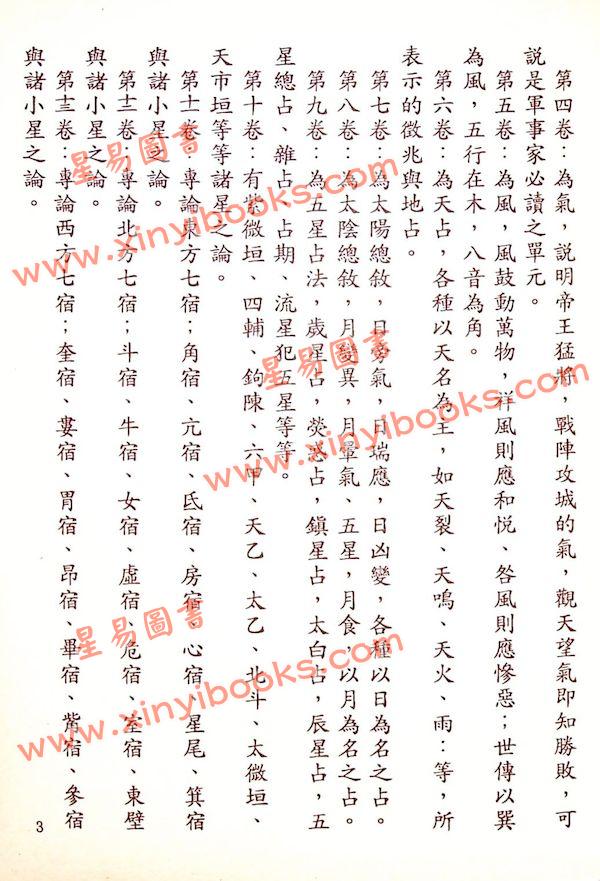 第四卷：為氣，説明帝王猛將，戰陣攻城的氣，觀天望氣即知勝敗，可
説是軍事家必讀之單元。
第五卷：為風，風鼓動萬物，祥風則應和悅、咎風則應慘惡；世傳以巽
為風，五行在木，八音為角。
第六卷：為天占，各種以天名為主，如天裂、天鳴、天火、雨…等，所
表示的徵兆與地占。
第七卷：為太陽總敘，日旁氣，日瑞應，日凶變，各種以日為名之占。
第八卷：為太陰總敘，月變異，月暈氣、五星，月食，以月為名之占。
第九卷：為五星占法，歲星占，熒惑占，鎮星占，太白占，辰星占，五
星總占、雜占、占期、流星犯五星等等。
第十卷：有紫微垣、四輔、鉤陳、六甲、天乙、太乙、北斗、太微垣、
天市垣等等諸星之論。
第十一卷：專論東方七宿；角宿、亢宿、氐宿、房宿、心宿、星尾、箕宿
與諸小星之論。
第十二卷：專論北方七宿；斗宿、牛宿、女宿、虛宿、危宿、室宿、東壁
與諸小星之論。
第十三卷：專論西方七宿；奎宿、婁宿、胃宿、昂宿、畢宿、觜宿、參宿
與諸小星之論。
3
星易圖書
www.xinyibooks.com
星易圖書
www.xinyibooks.com
星易圖書
www.xinyibooks.com